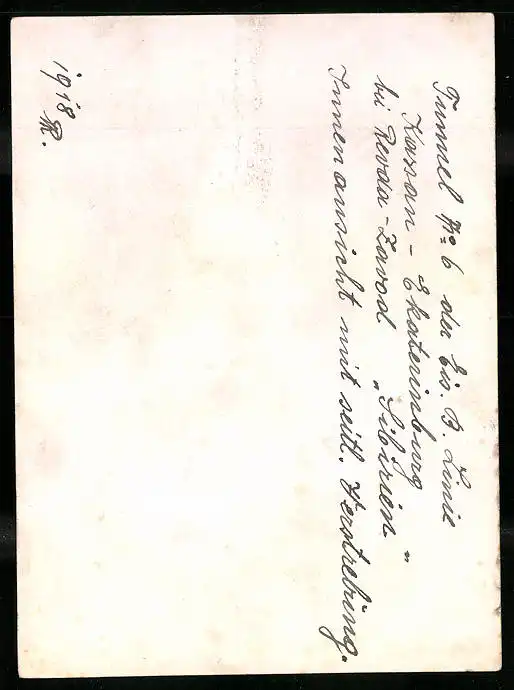 Tunnel No 6 der Eis. B. Linie
Kasan - Ekaterinburg
bei Revda-Zavod „Sibirien"
Innenansicht mit seitl. Verstrebung.
1918 R.